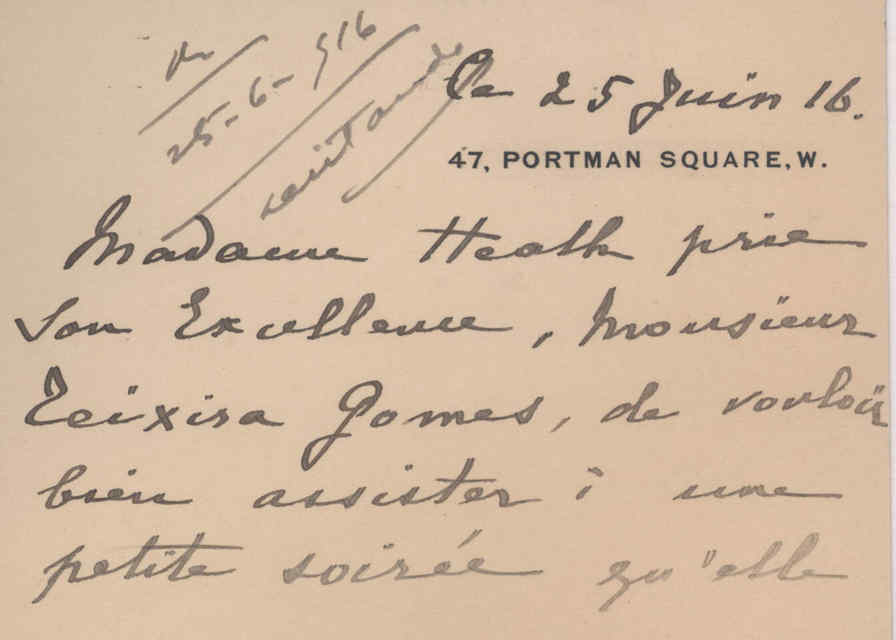 R
25-6-916
Le 25 Juin 16.
47, PORTMAN SQUARE, W.
Madame Heath prie
Son Excellence, Monsieur
Teixira Gomes, de vouloir
bien assister à une
petite soirée qu'elle